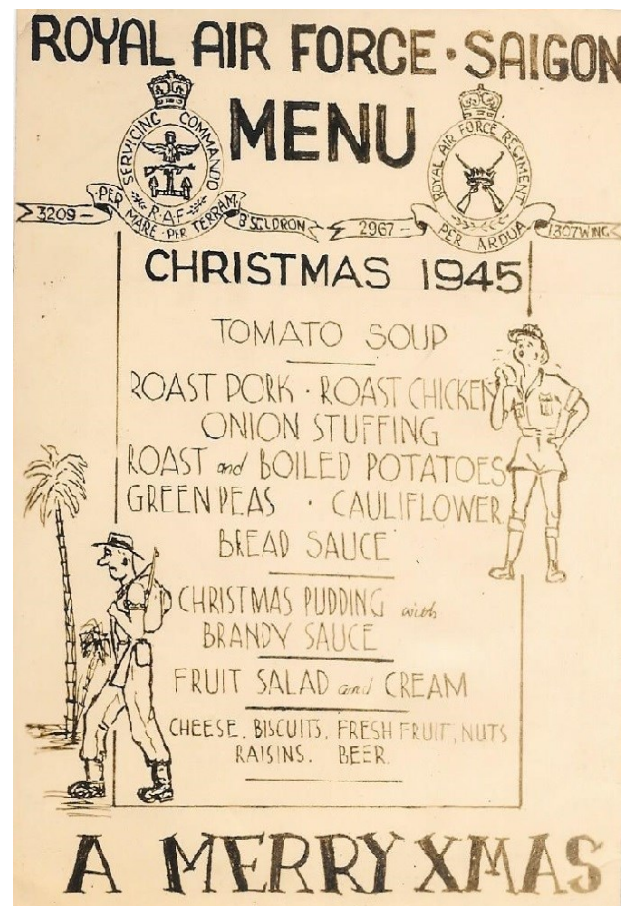 ROYAL AIR FORCE · SAIGON
MENU
SERVICING COMMANDO
R.A.F
PER MARE PER TERRAM
3209 -
B'SQLDRON
ROYAL AIR FORCE REGIMENT
PER ARDUA
2967 -
1307 WING
CHRISTMAS 1945
TOMATO SOUP
ROAST PORK · ROAST CHICKEN
ONION STUFFING
ROAST and BOILED POTATOES
GREEN PEAS · CAULIFLOWER
BREAD SAUCE
CHRISTMAS PUDDING with
BRANDY SAUCE
FRUIT SALAD and CREAM
CHEESE. BISCUITS. FRESH FRUIT, NUTS
RAISINS. BEER.
A MERRY XMAS